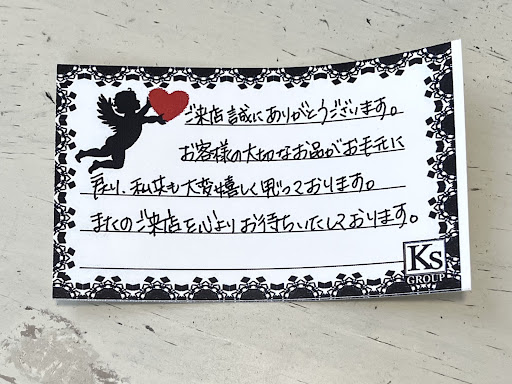 ご来店誠にありがとうございます。
お客様の大切なお品がお手元に
戻り、私共も大変嬉しく思っております。
またのご来店を心よりお待ちいたしております。
Ks
GROUP